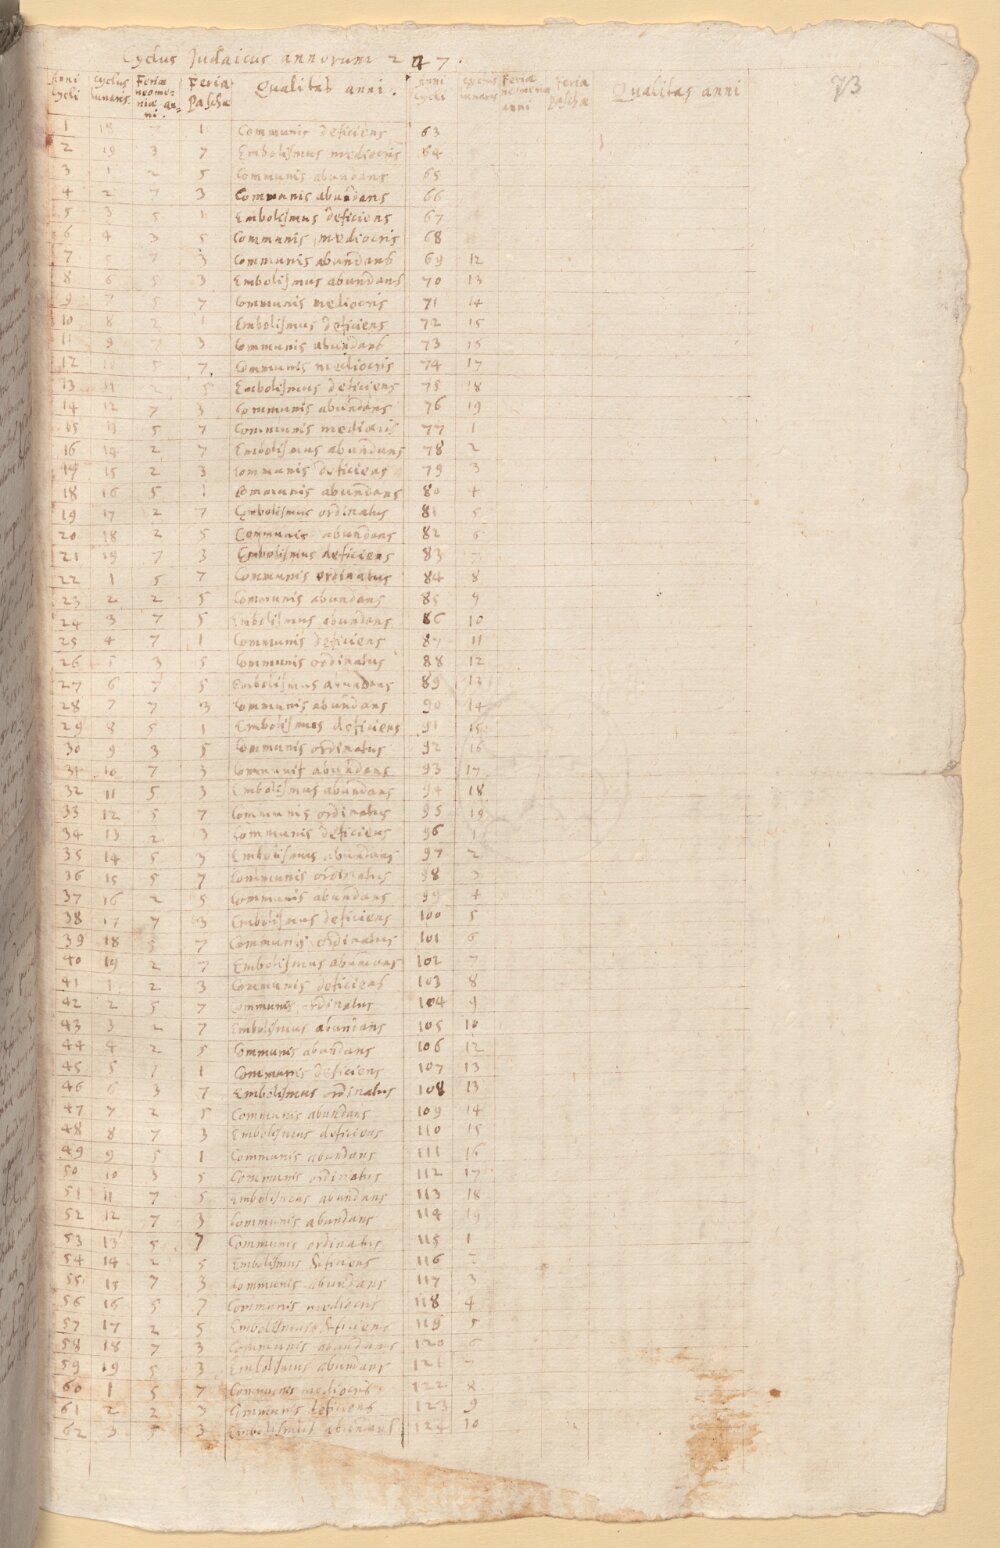 Cyclus Judaicus annorum 247.
73
Anni Cycli | Cyclus lunaris | Feria neomeniæ anni | Feria Paschæ | Qualitas anni. | Anni Cycli | Cyclus lunaris | Feria neomeniæ anni | Feria Paschæ | Qualitas anni
1 18 7 1 Communis deficiens 63
2 19 3 7 Embolismus mediocris 64
3 1 2 5 Communis abundans 65
4 2 7 3 Communis abundans 66
5 3 5 1 Embolismus deficiens 67
6 4 3 5 Communis mediocris 68
7 5 7 3 Communis abundans 69 12
8 6 5 3 Embolismus abundans 70 13
9 7 5 7 Communis mediocris 71 14
10 8 2 1 Embolismus deficiens 72 15
11 9 7 3 Communis abundans 73 15
12 5 7 Communis mediocris 74 17
13 11 2 5 Embolismus deficiens 75 18
14 12 7 3 Communis abundans 76 19
15 13 5 7 Communis mediocris 77 1
16 14 2 7 Embolismus abundans 78 2
17 15 2 3 Communis deficiens 79 3
18 16 5 1 Communis abundans 80 4
19 17 2 7 Embolismus ordinatus 81 5
20 18 2 5 Communis abundans 82 6
21 19 7 3 Embolismus deficiens 83 7
22 1 5 7 Communis ordinatus 84 8
23 2 2 5 Communis abundans 85 9
24 3 7 5 Embolismus abundans 86 10
25 4 7 1 Communis deficiens 87 11
26 5 3 5 Communis ordinatus 88 12
27 6 7 5 Embolismus abundans 89 13
28 7 7 3 Communis abundans 90 14
29 8 5 1 Embolismus deficiens 91 15
30 9 3 5 Communis ordinatus 92 16
31 10 7 3 Communis abundans 93 17
32 11 5 3 Embolismus abundans 94 18
33 12 5 7 Communis ordinatus 95 19
34 13 2 3 Communis deficiens 96 1
35 14 5 3 Embolismus abundans 97 2
36 15 5 7 Communis ordinatus 98 3
37 16 2 5 Communis abundans 99 4
38 17 7 3 Embolismus deficiens 100 5
39 18 5 7 Communis ordinatus 101 6
40 19 2 7 Embolismus abundans 102 7
41 1 2 3 Communis deficiens 103 8
42 2 5 7 Communis ordinatus 104 9
43 3 2 7 Embolismus abundans 105 10
44 4 2 5 Communis abundans 106 12
45 5 7 1 Communis deficiens 107 13
46 6 3 7 Embolismus ordinatus 108 13
47 7 2 5 Communis abundans 109 14
48 8 7 3 Embolismus deficiens 110 15
49 9 5 1 Communis abundans 111 16
50 10 3 5 Communis ordinatus 112 17
51 11 7 5 Embolismus abundans 113 18
52 12 7 3 Communis abundans 114 19
53 13 5 7 Communis ordinatus 115 1
54 14 2 5 Embolismus deficiens 116 2
55 15 7 3 Communis abundans 117 3
56 16 5 7 Communis mediocris 118 4
57 17 2 5 Embolismus deficiens 119 5
58 18 7 3 Communis abundans 120 6
59 19 5 3 Embolismus abundans 121 7
60 1 5 7 Communis mediocris 122 8
61 2 2 3 Communis deficiens 123 9
62 3 5 3 Embolismus abundans 124 10